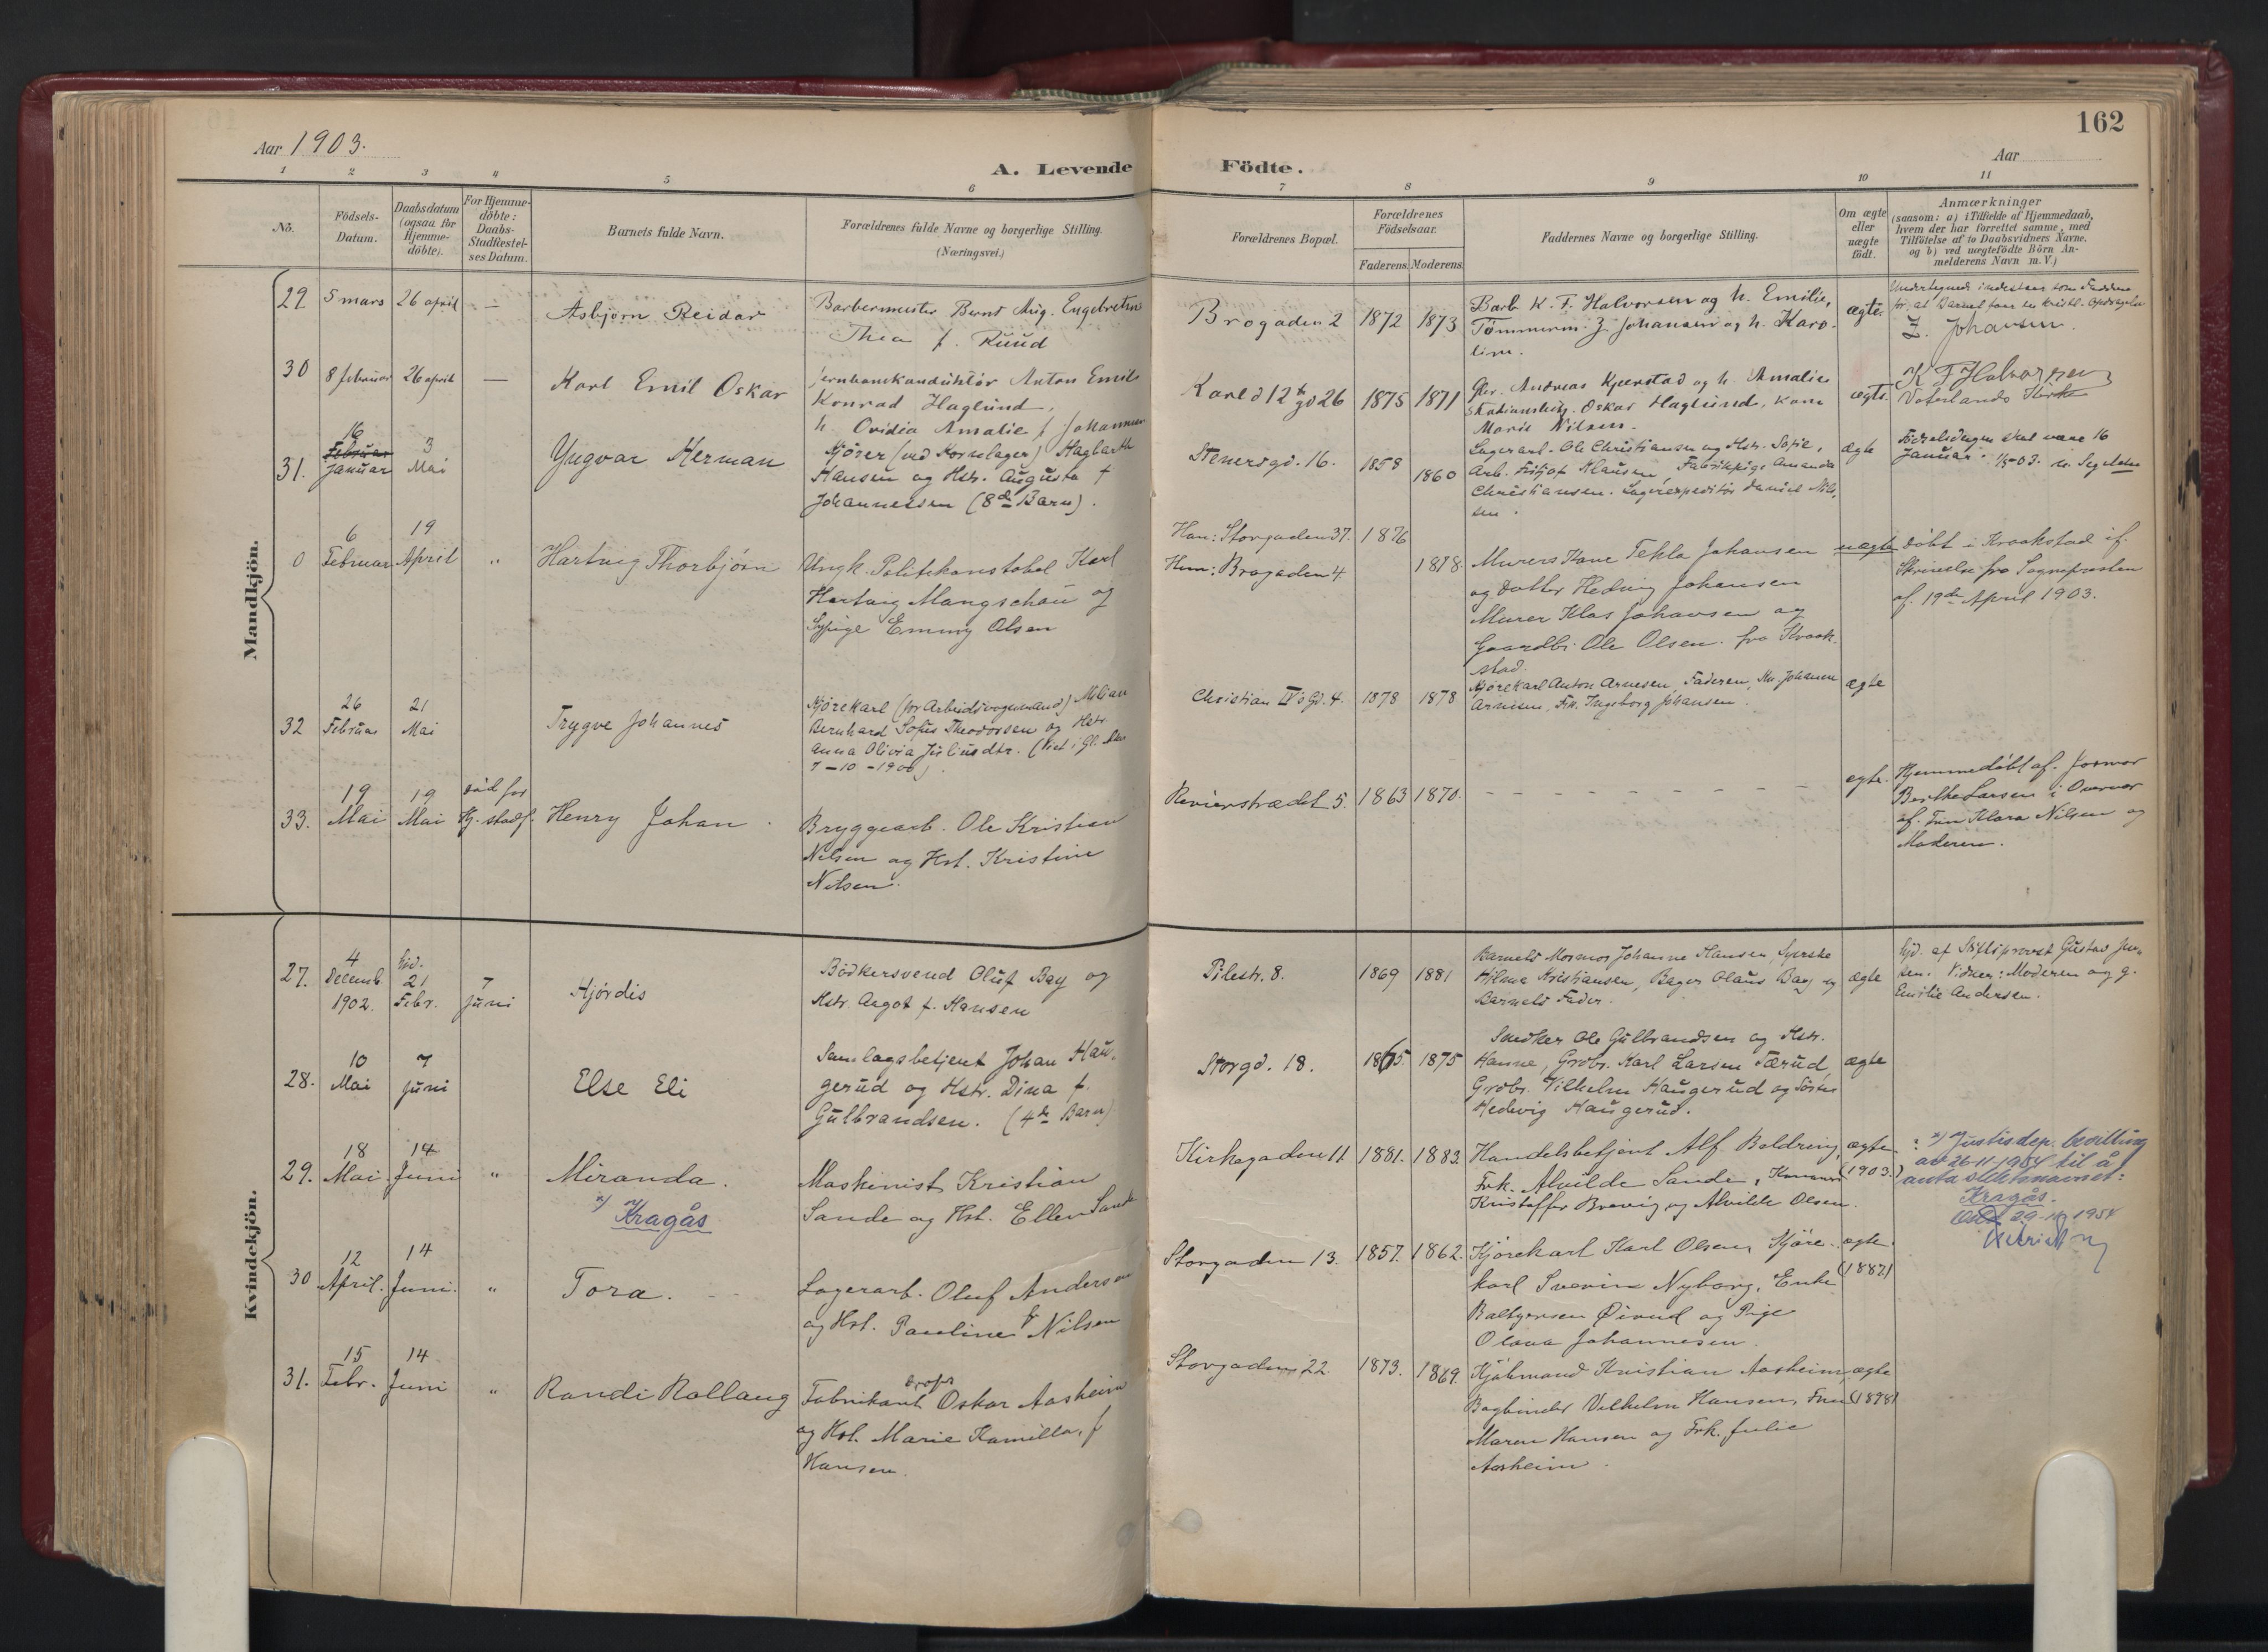 162
Aar 1903.
Aar
A. Levende Födte.
1 2 3 4 5 6 7 8 9 10 11
No.
Födsels-
Datum.
Daabsdatum
(ogsaa for
Hjemme-
döbte).
For Hjemme-
döbte:
Daabs-
Stadfæstel-
ses Datum.
Barnets fulde Navn.
Forældrenes fulde Navne og borgerlige Stilling.
(Næringsvei.)
Forældrenes Bopæl.
Forældrenes
Födselsaar.
Faderens. Moderens.
Faddernes Navne og borgerlige Stilling.
Om ægte
eller
uægte
födt.
Anmærkninger
(saasom: a) i Tilfælde af Hjemmedaab,
hvem der har forrettet samme, med
Tilföielse af to Daabsvidners Navne.
og b) ved uægtefödte Börn An-
melderens Navn m. V.)
Mandkjön.
29. 5 mars 26 april — Asbjørn Reidar
Barbermester Bernt Aug. Engebretsen
Thea f. Ruud
Brogaden 2 1872 1873
Barb. K. F. Halvorsen og h. Emilie,
Tømmerm. J. Johansen og h. Karo-
line.
ægte.
Undertegnede indestaar som Faddere
for, at Barnet faar en kristl. Opdragelse
Z. Johansen.
30 8 februar 26 april — Karl Emil Oskar
Jernbanekonduktør Anton Emil
Konrad Haglund,
h. Ovidia Amalie f. Johannesen
Karl d 12tes gd 26 1875 1871
Andreas Kjærstad og h. Amalie
Oskar Haglund, kone
Marie Nilsen.
ægte.
K F Halvorsen
Vaterlands Kirke
31. 16 Februar Januar 3 Mai Yngvar Herman
Kjører (ved Kornlager) Hagbarth
Hansen og Hstr. Augusta f
Johannessen (8de Barn).
Stenersgd. 16. 1858 1860
Lagerarb. Ole Christiansen og Hstr. Sofie,
Arb. Fritjof Klausen, Fabrikpige Amanda
Christiansen. Lagerexpeditør Daniel Nil-
sen.
ægte
Fødselsdagen skal være 16
Januar.
0 6 Februar 19 April " Hartvig Thorbjørn
Ungk. Politikonstabel Karl
Hartvig Mangschau og
Sypige Emmy Olsen
Han: Storgaden 37. 1876
Hun: Brogaden 4. 1878
Murers Kone Tekla Johansen
og Datter Hedvig Johansen
Murer Klas Johansen og
Gaardbr. Ole Olsen. fra Kraak-
stad.
uægte
Døbt i Kraakstad if.
Skrivelse fra Sognepresten
af. 19de April 1903.
32 26 Februar 21 Mai Trygve Johannes
Kjørekarl (for Arbeidsvognmand) Milian
Bernhard Sofus Theodorsen og Hstr.
Anna Olivia Juliusdtr. (Viet i Gl. Aker
7-10-1900).
Christian IVs Gd. 4. 1878 1878
Kjørekarl Anton Arnesen, Faderen, Johanna
Arnesen, Frk. Ingeborg Johansen.
ægte
33. 19 Mai 19 Mai død før Hj. stadf. Henry Johan
Bryggearb. Ole Kristian
Nilsen og Hst. Kristine
Nilsen.
Revierstrædet 5. 1863 1870.
ægte.
Hjemmedøbt af. Jormor
Berthe Larsen i Overvær
af. Fru Klara Nilsen og
Moderen.
Kvindekjön.
27. 4 Decemb. 1902. hjd. 21 Febr. 7 Juni Hjørdis
Bødkersvend Oluf Bay og
Hstr. Argot f. Hansen
Pilestr. 8. 1869 1881
Barnets Mormor Johanne Hansen, Syerske
Hilma Kristiansen, Bager Olaus Bay og
Barnets Fader.
ægte
hjd. af Stiftsprovst Gustav Jen-
sen. Vidner: Moderen og g.
Emilie Andersen.
28. 10 Mai 7 Juni Else Eli
Samlagsbetjent Johan Hau-
gerud og Hstr. Dina f.
Gulbrandsen. (4de Barn)
Storgd. 18. 1865 1875
Snedker Ole Gulbrandsen og Hstr.
Hanne, Grdbr. Karl Larsen Tærud,
Grdbr. Vilhelm Haugerud og Søster
Hedevig Haugerud.
ægte
29. 18 Mai 14 Juni " Miranda.
x) Kragås
Maskinist Kristian
Sande og Hst. Ellen Sande
Kirkegaden 11 1881. 1883.
Handelsbetjent Alf Boldring,
Frk. Alvilde Sande,
Kristoffer Brevig og Alvilde Olsen.
ægte (1903.)
x) Justisdep. bevilling
av 26-11-1954 til å
anta slektsnavnet:
Kragås.
30 12 April. 14 Juni. " Tora.
Lagerarb. Oluf Andersen
og Hst. Pauline f Nilsen
Storgaden 13. 1857. 1862.
Kjørekarl Karl Olsen, Kjøre-
karl Severin Nyborg, Enke
Øivind og Pige
Olava Johannesen.
ægte (1882)
31. 15 Febr. 14 Juni " Randi Rollaug
Fabrikant Oskar Aasheim
og Hst. Marie Kamilla, f
Hansen.
Storgaden 22 1873. 1869.
Kjøbmand Kristian Aasheim,
Bogbinder Vilhelm Hansen, Fru
Maren Hansen og Frk. Julie
Aasheim.
ægte (1898)